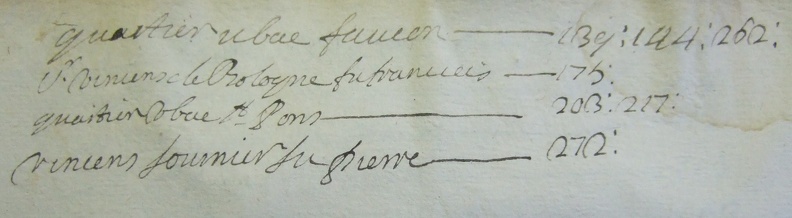 quartier ubac faucon — 139: 144: 262:
Sr vincens de Bologne fu francois — 175:
quartier Vbac St Pons — 203: 217:
vincens fournier fu pierre — 272: